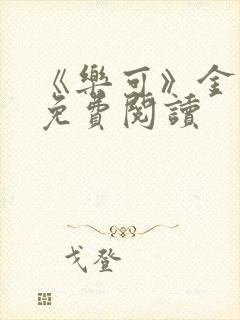 《樂可》金
免費閱讀
戈登